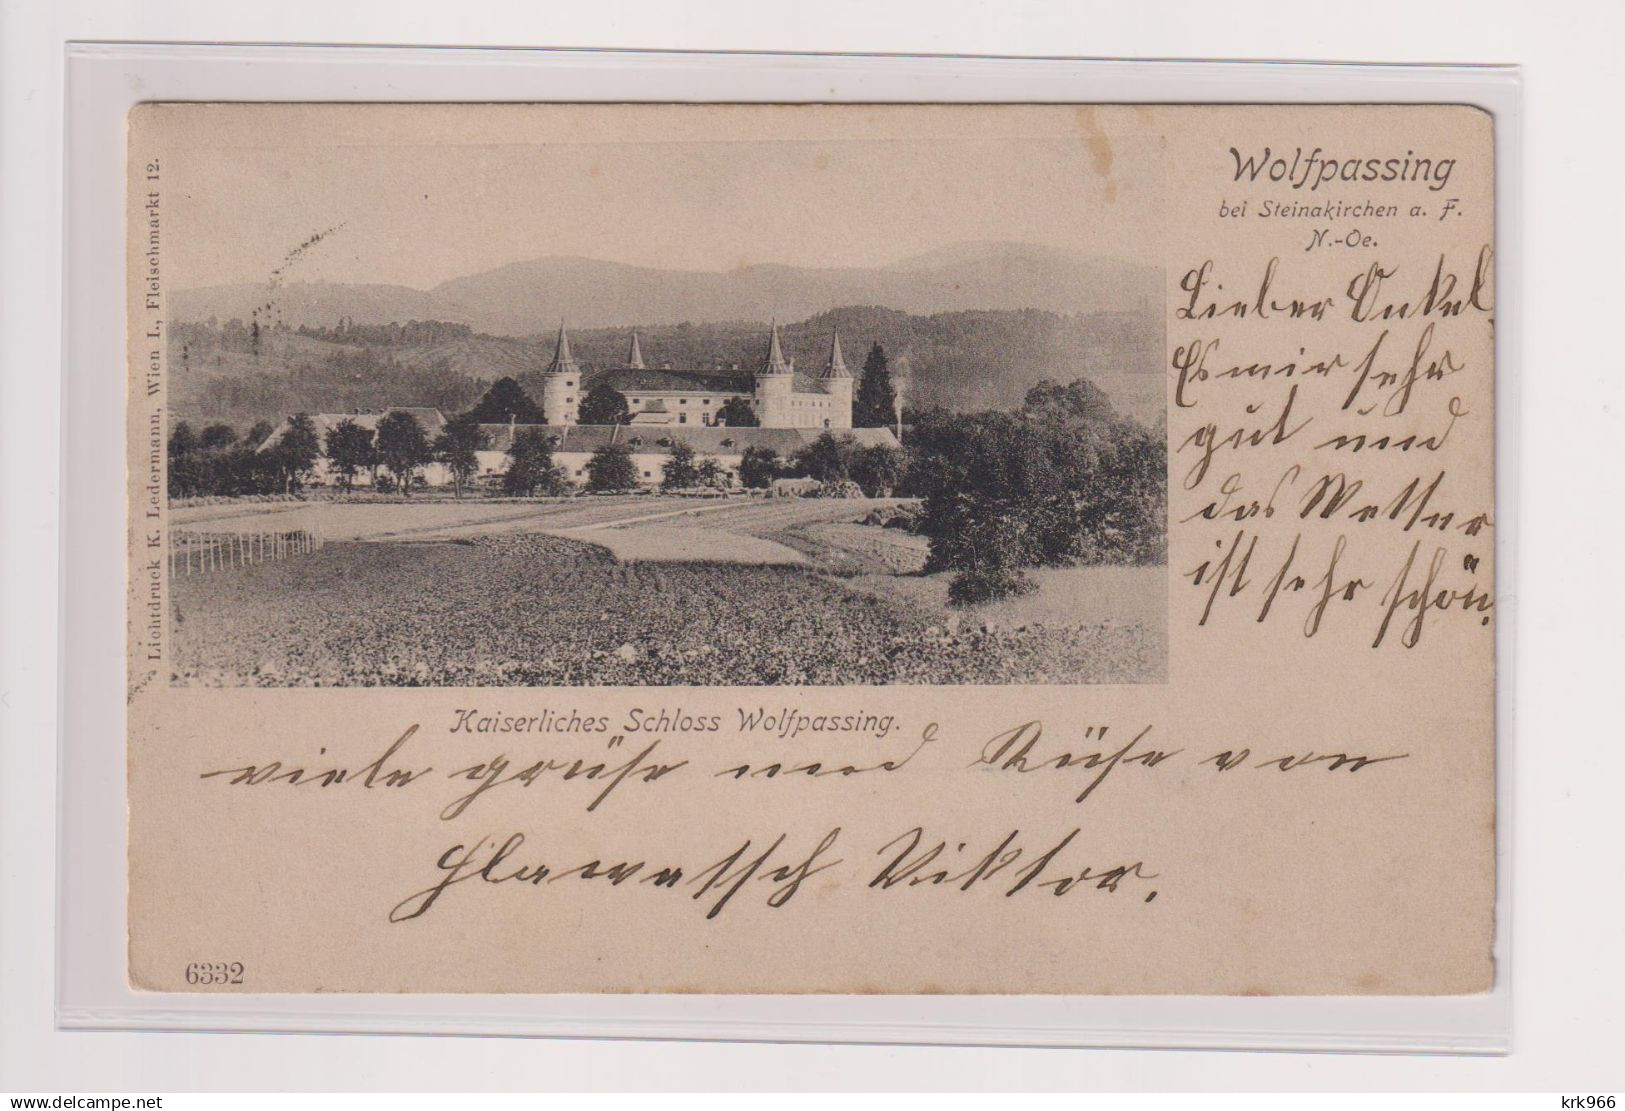 Lichtdruck K. Ledermann, Wien I., Fleischmarkt 12.
Wolfpassing
bei Steinakirchen a. F.
N.-Oe.
Lieber Onkel.
Es mir sehr
gut und
das Wetter
ist sehr schön.
Kaiserliches Schloss Wolfpassing.
viele grüse und Küse von
Hlawatsch Viktor.
6332
delcampe.net
krk966